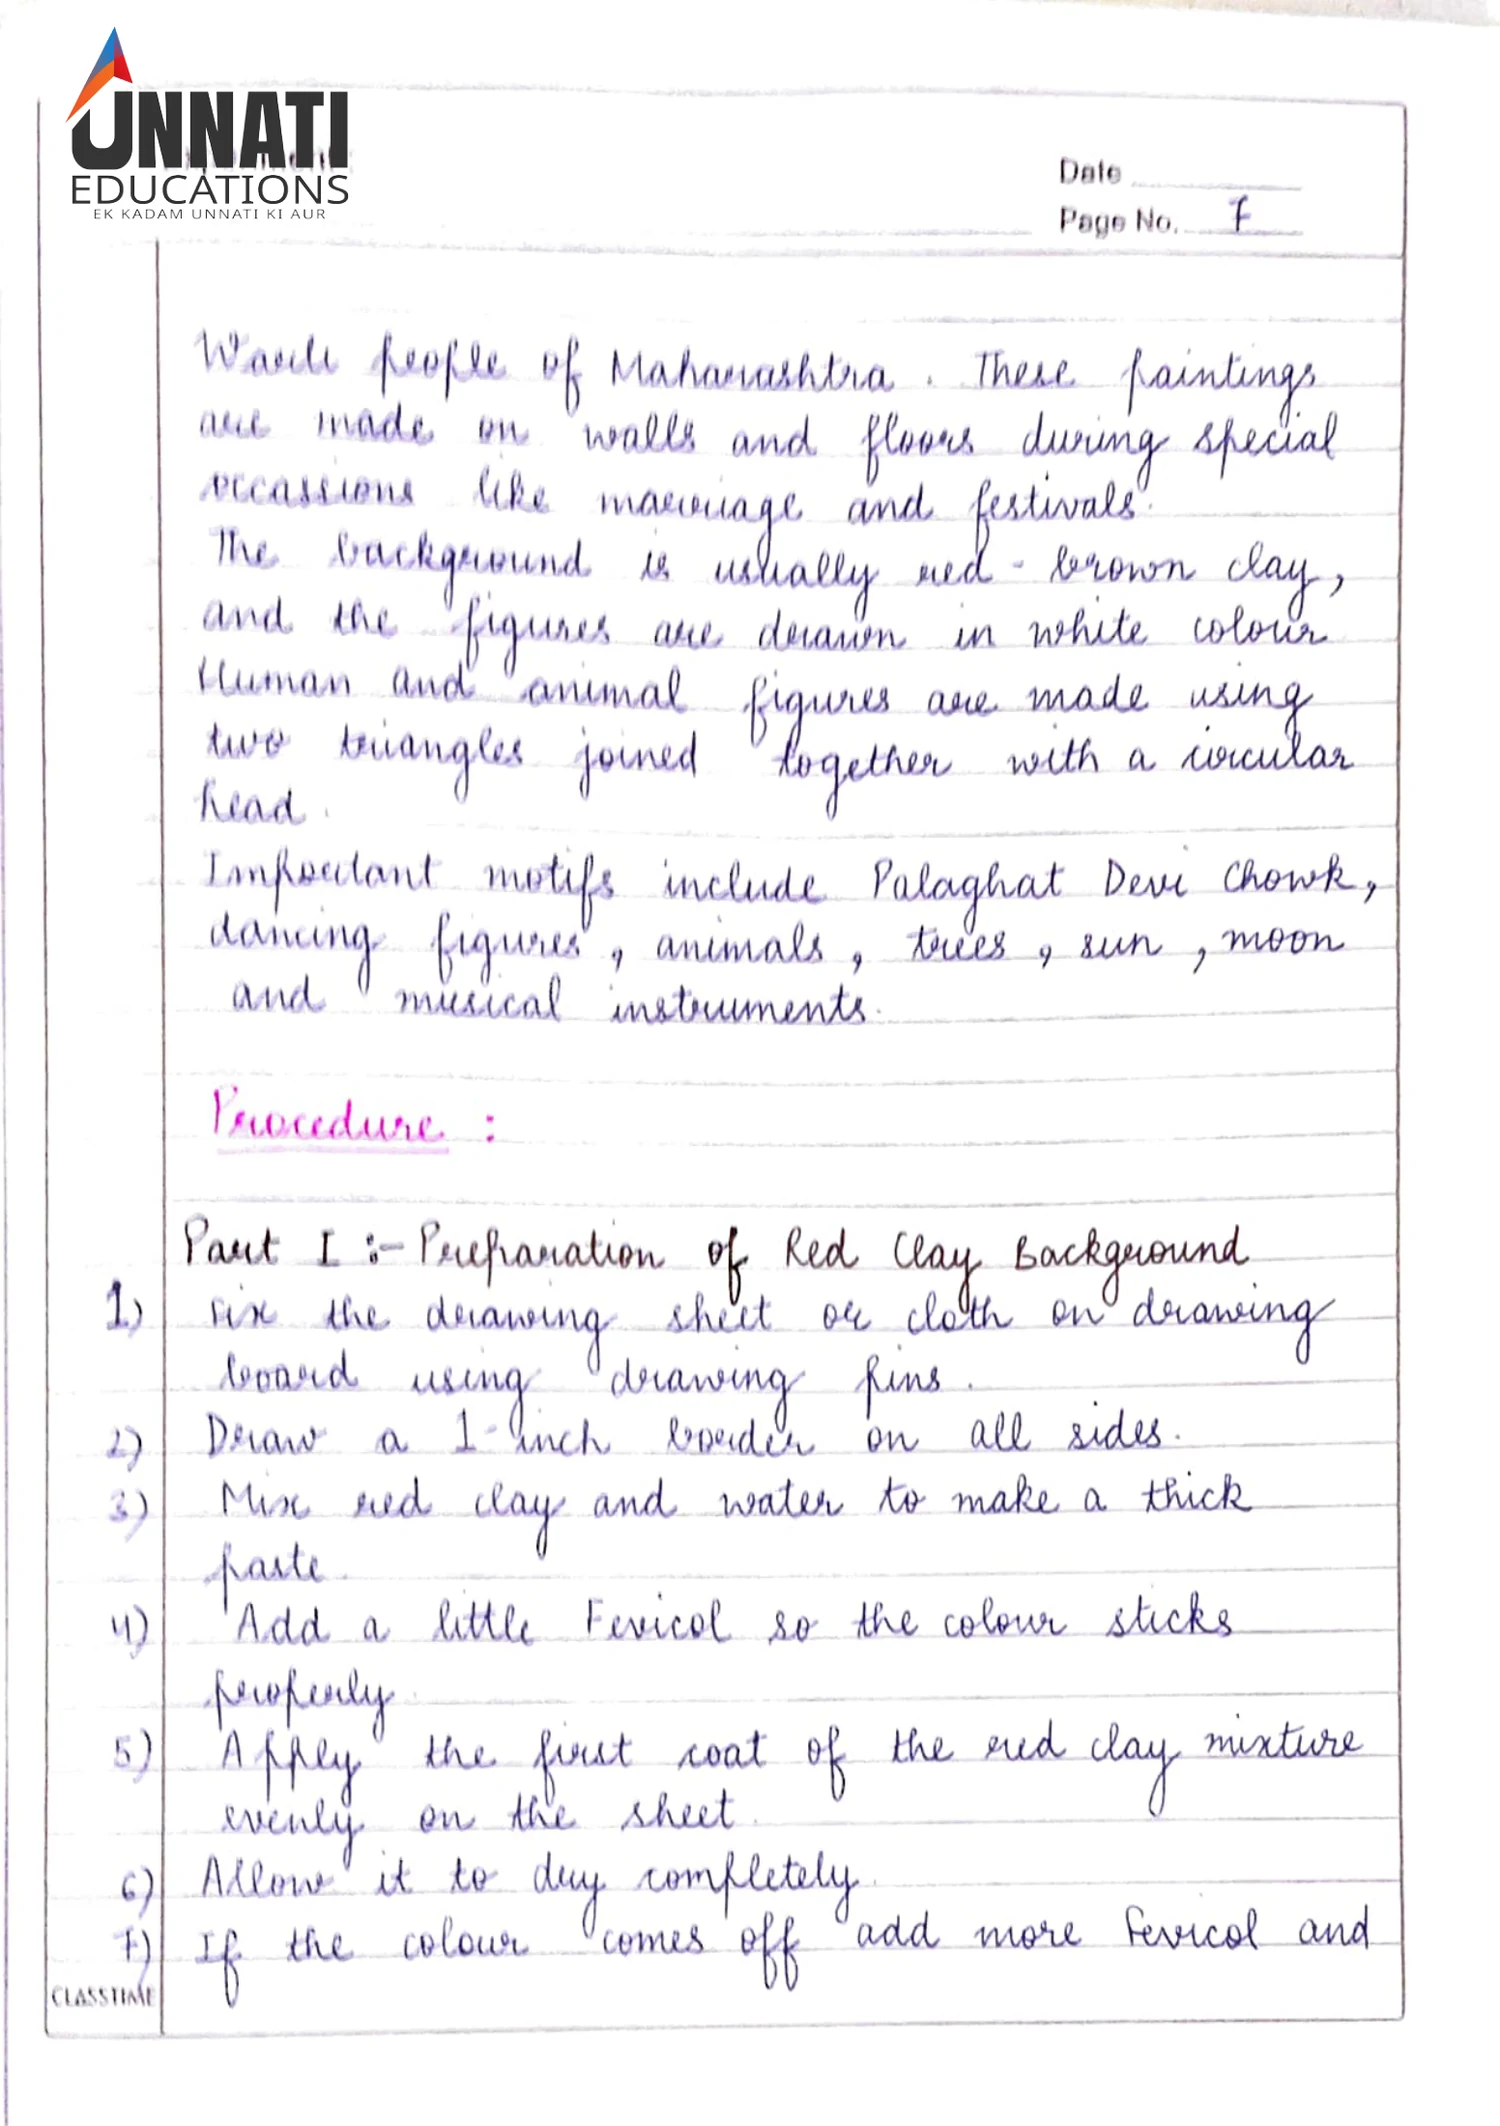 UNNATI
EDUCATIONS
EK KADAM UNNATI KI AUR
Date
Page No. 7
Warli people of Maharashtra. These paintings
are made on walls and floors during special
occassions like marriage and festivals.
The background is usually red - brown clay,
and the figures are drawn in white colour
Human and animal figures are made using
two triangles joined together with a circular
head.
Important motifs include Palaghat Devi Chowk,
dancing figures, animals, trees, sun, moon
and musical instruments.
Procedure :
Part I :- Preparation of Red Clay Background
1) Fix the drawing sheet or cloth on drawing
board using drawing pins.
2) Draw a 1-inch border on all sides.
3) Mix red clay and water to make a thick
paste.
4) Add a little Fevicol so the colour sticks
properly.
5) Apply the first coat of the red clay mixture
evenly on the sheet.
6) Allow it to dry completely.
7) If the colour comes off add more Fevicol and
CLASSTIME